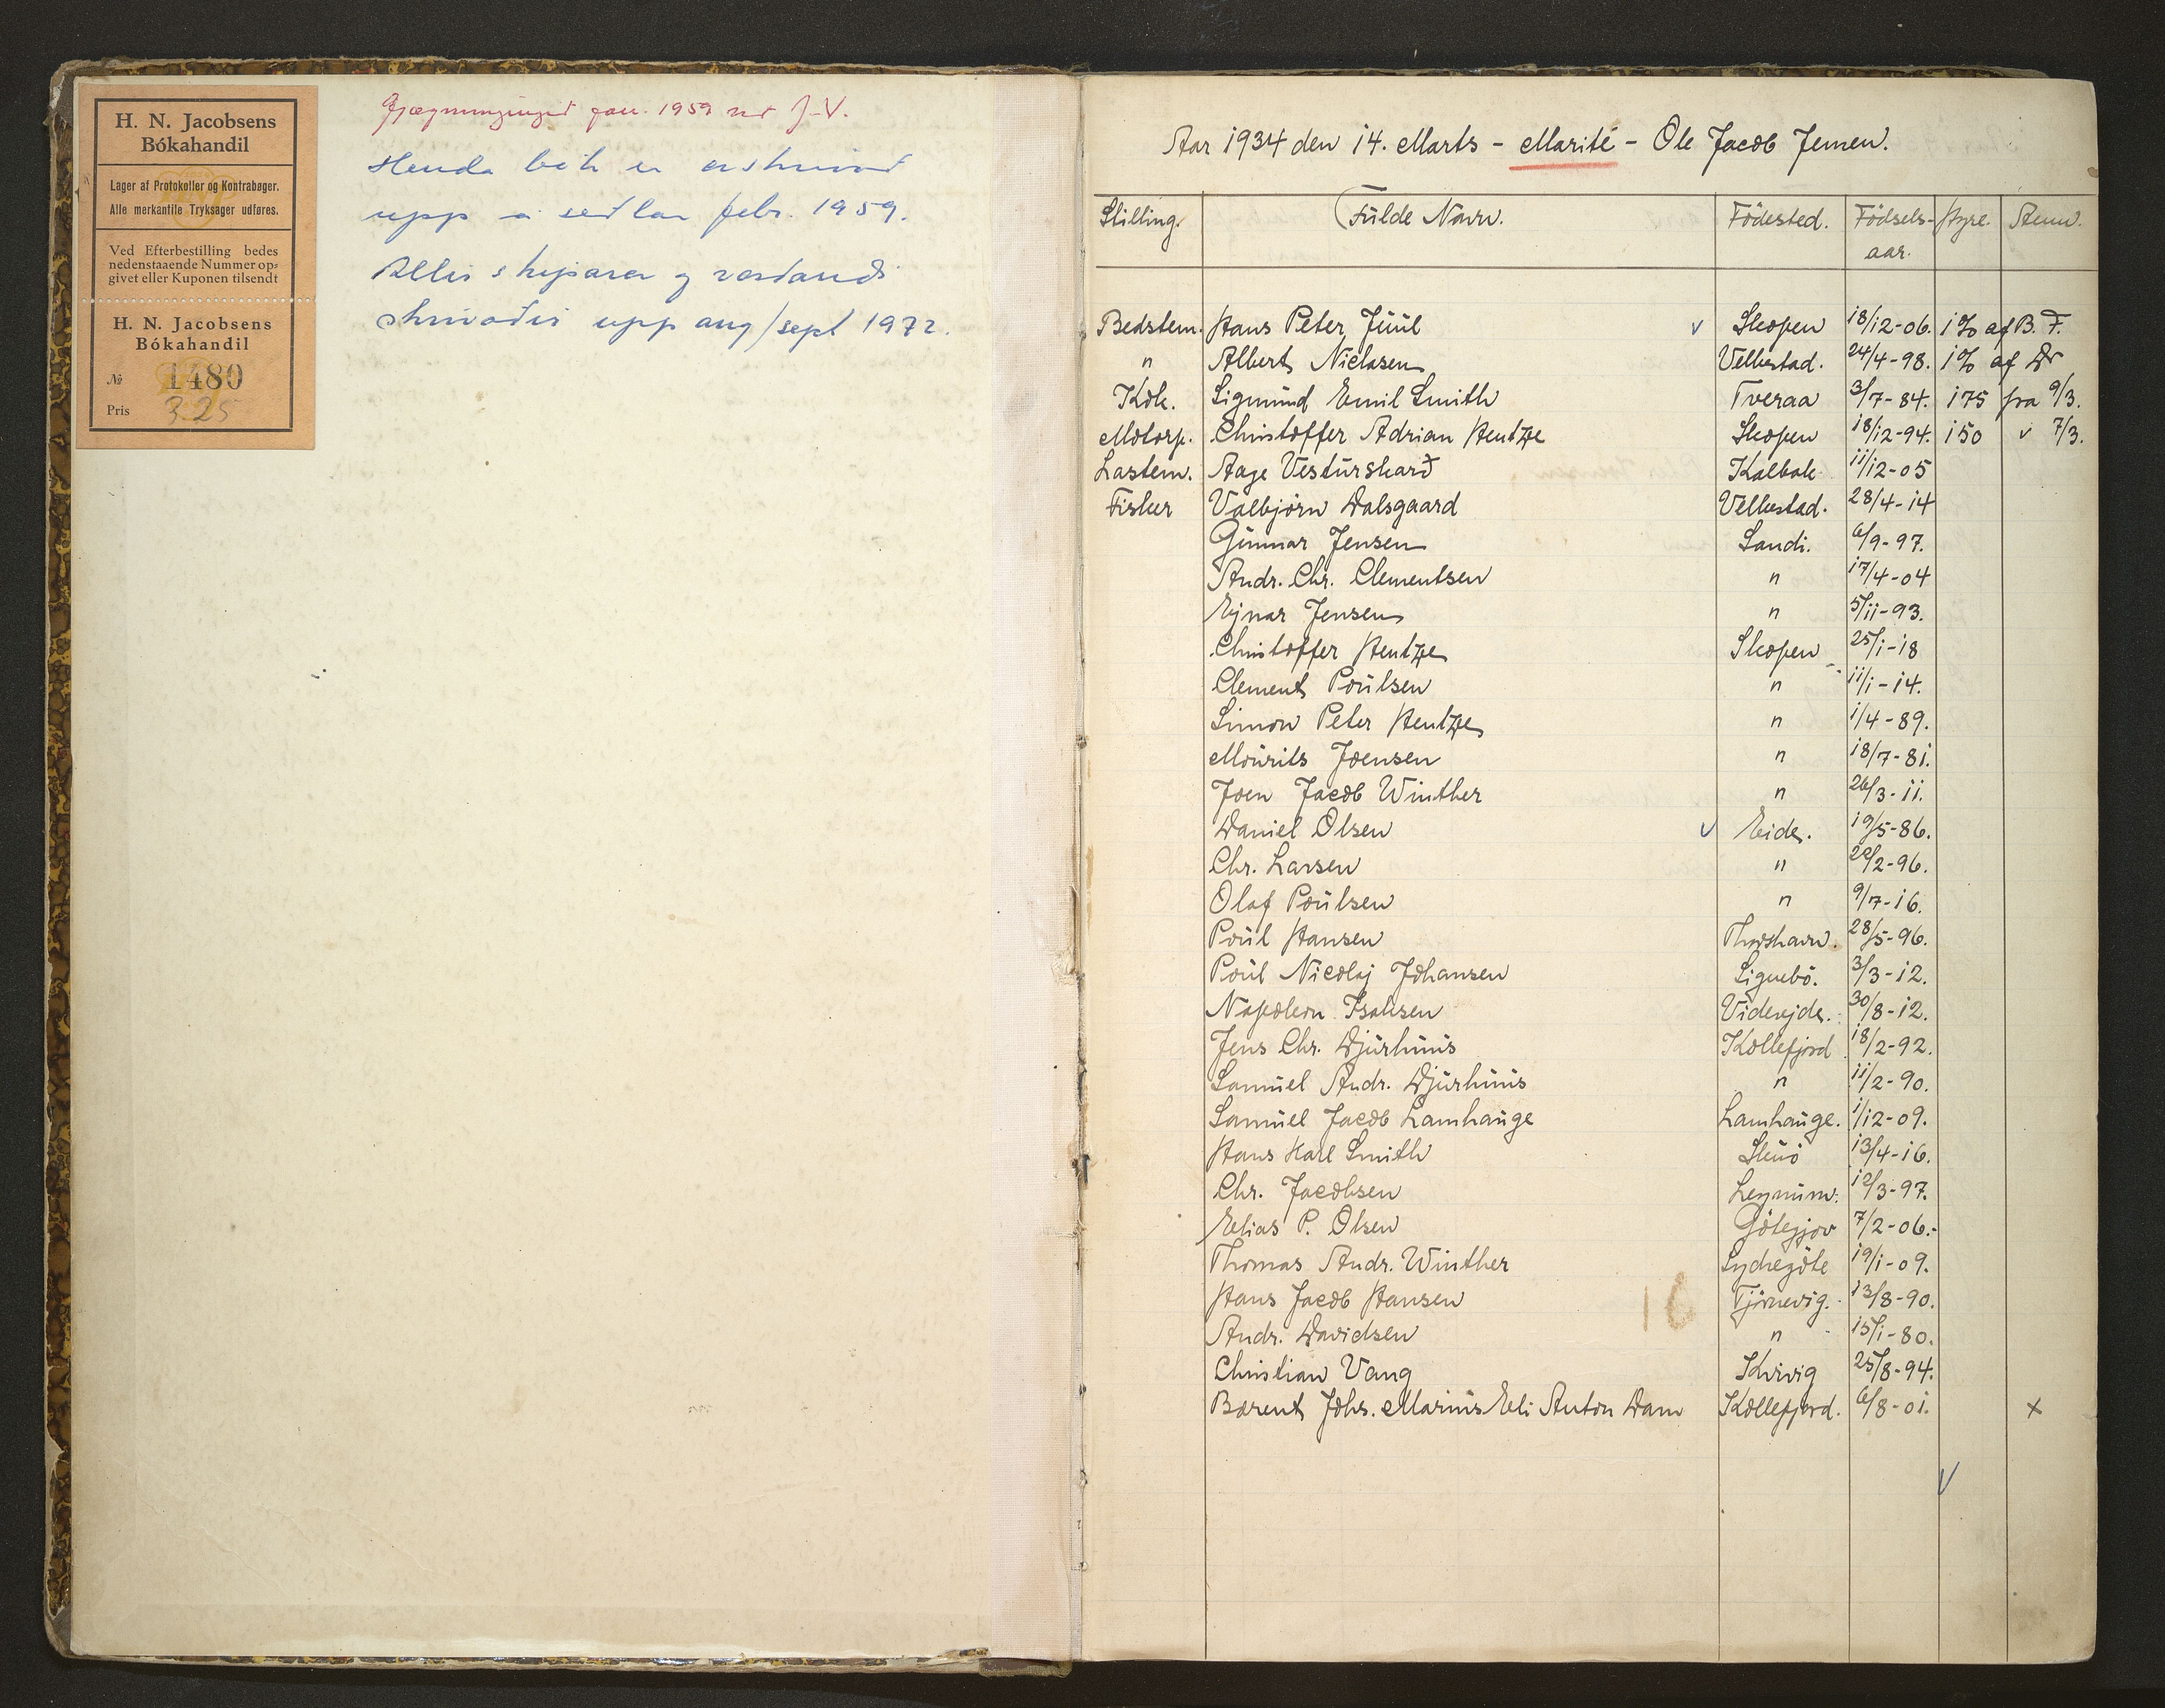 H. N. Jacobsens
Bókahandil
Lager af Protokoller og Kontrabøger.
Alle merkantile Tryksager udføres.
Ved Efterbestilling bedes
nedenstaaende Nummer op-
givet eller Kuponen tilsendt
H. N. Jacobsens
Bókahandil
№ 1480
Pris 3.25
jan. 1959 J-V.
Henda bók er avskrivað
upp á seðlar febr. 1959.
Allir skiparar og
skrivaðir upp aug/sept 1972.
Aar 1934 den 14. Marts - Marité - Ole Jacob Jensen.
Stilling. Fulde Navn. Födested. Födsels- Hyre. Anm.
aar.
Bedstem. Hans Peter Juul v Skopen 18/12-06. 1% af B. F.
" Albert Niclasen Velbestad. 24/4-98. 1% af Do
Kok. Sigmund Emil Smith Tveraa 3/7-84. 175 fra 9/3.
Motorp. Christoffer Adrian Hentze Skopen 18/12-94. 150 v 7/3.
Lastem. Aage Vesturskarð Kalbak 11/12-05
Fisker Valbjörn Dalsgaard Velbestad. 28/4-14
Gunnar Jensen Sandi. 6/9-97.
Andr. Chr. Clementsen " 17/4-04
Ejnar Jensen " 5/11-93.
Christoffer Hentze Skopen 25/1-18
Clement Poulsen " 11/1-14.
Simon Peter Hentze " 1/4-89.
Mourits Joensen " 18/7-81.
Joen Jacob Winther " 26/3-11.
Daniel Olsen v Eide. 19/5-86.
Chr. Larsen " 20/2-96.
Olaf Poulsen " 9/7-16.
Poul Hansen Thorshavn. 28/5-96.
Poul Nicolaj Johansen Signebö. 3/3-12.
Napoleon Isaksen Viderejde. 30/8-12.
Jens Chr. Djurhuus Kollefjord 18/2-92.
Samuel Andr. Djurhuus " 11/2-90.
Samuel Jacob Lamhauge Lamhauge. 1/12-09.
Hans Karl Smith Skuö 13/4-16.
Chr. Jacobsen Leynum. 12/3-97.
Elias P. Olsen Götegjov 7/2-06.
Thomas Andr. Winther Sydregöte 19/1-09.
Hans Jacob Hansen 16 Tjörnevig. 13/8-90.
Andr. Davidsen " 15/1-80.
Christian Vang Kvivig 25/8-94.
Barent Johs. Marius Eli Anton Dam Kollefjord. 6/8-01. x
v